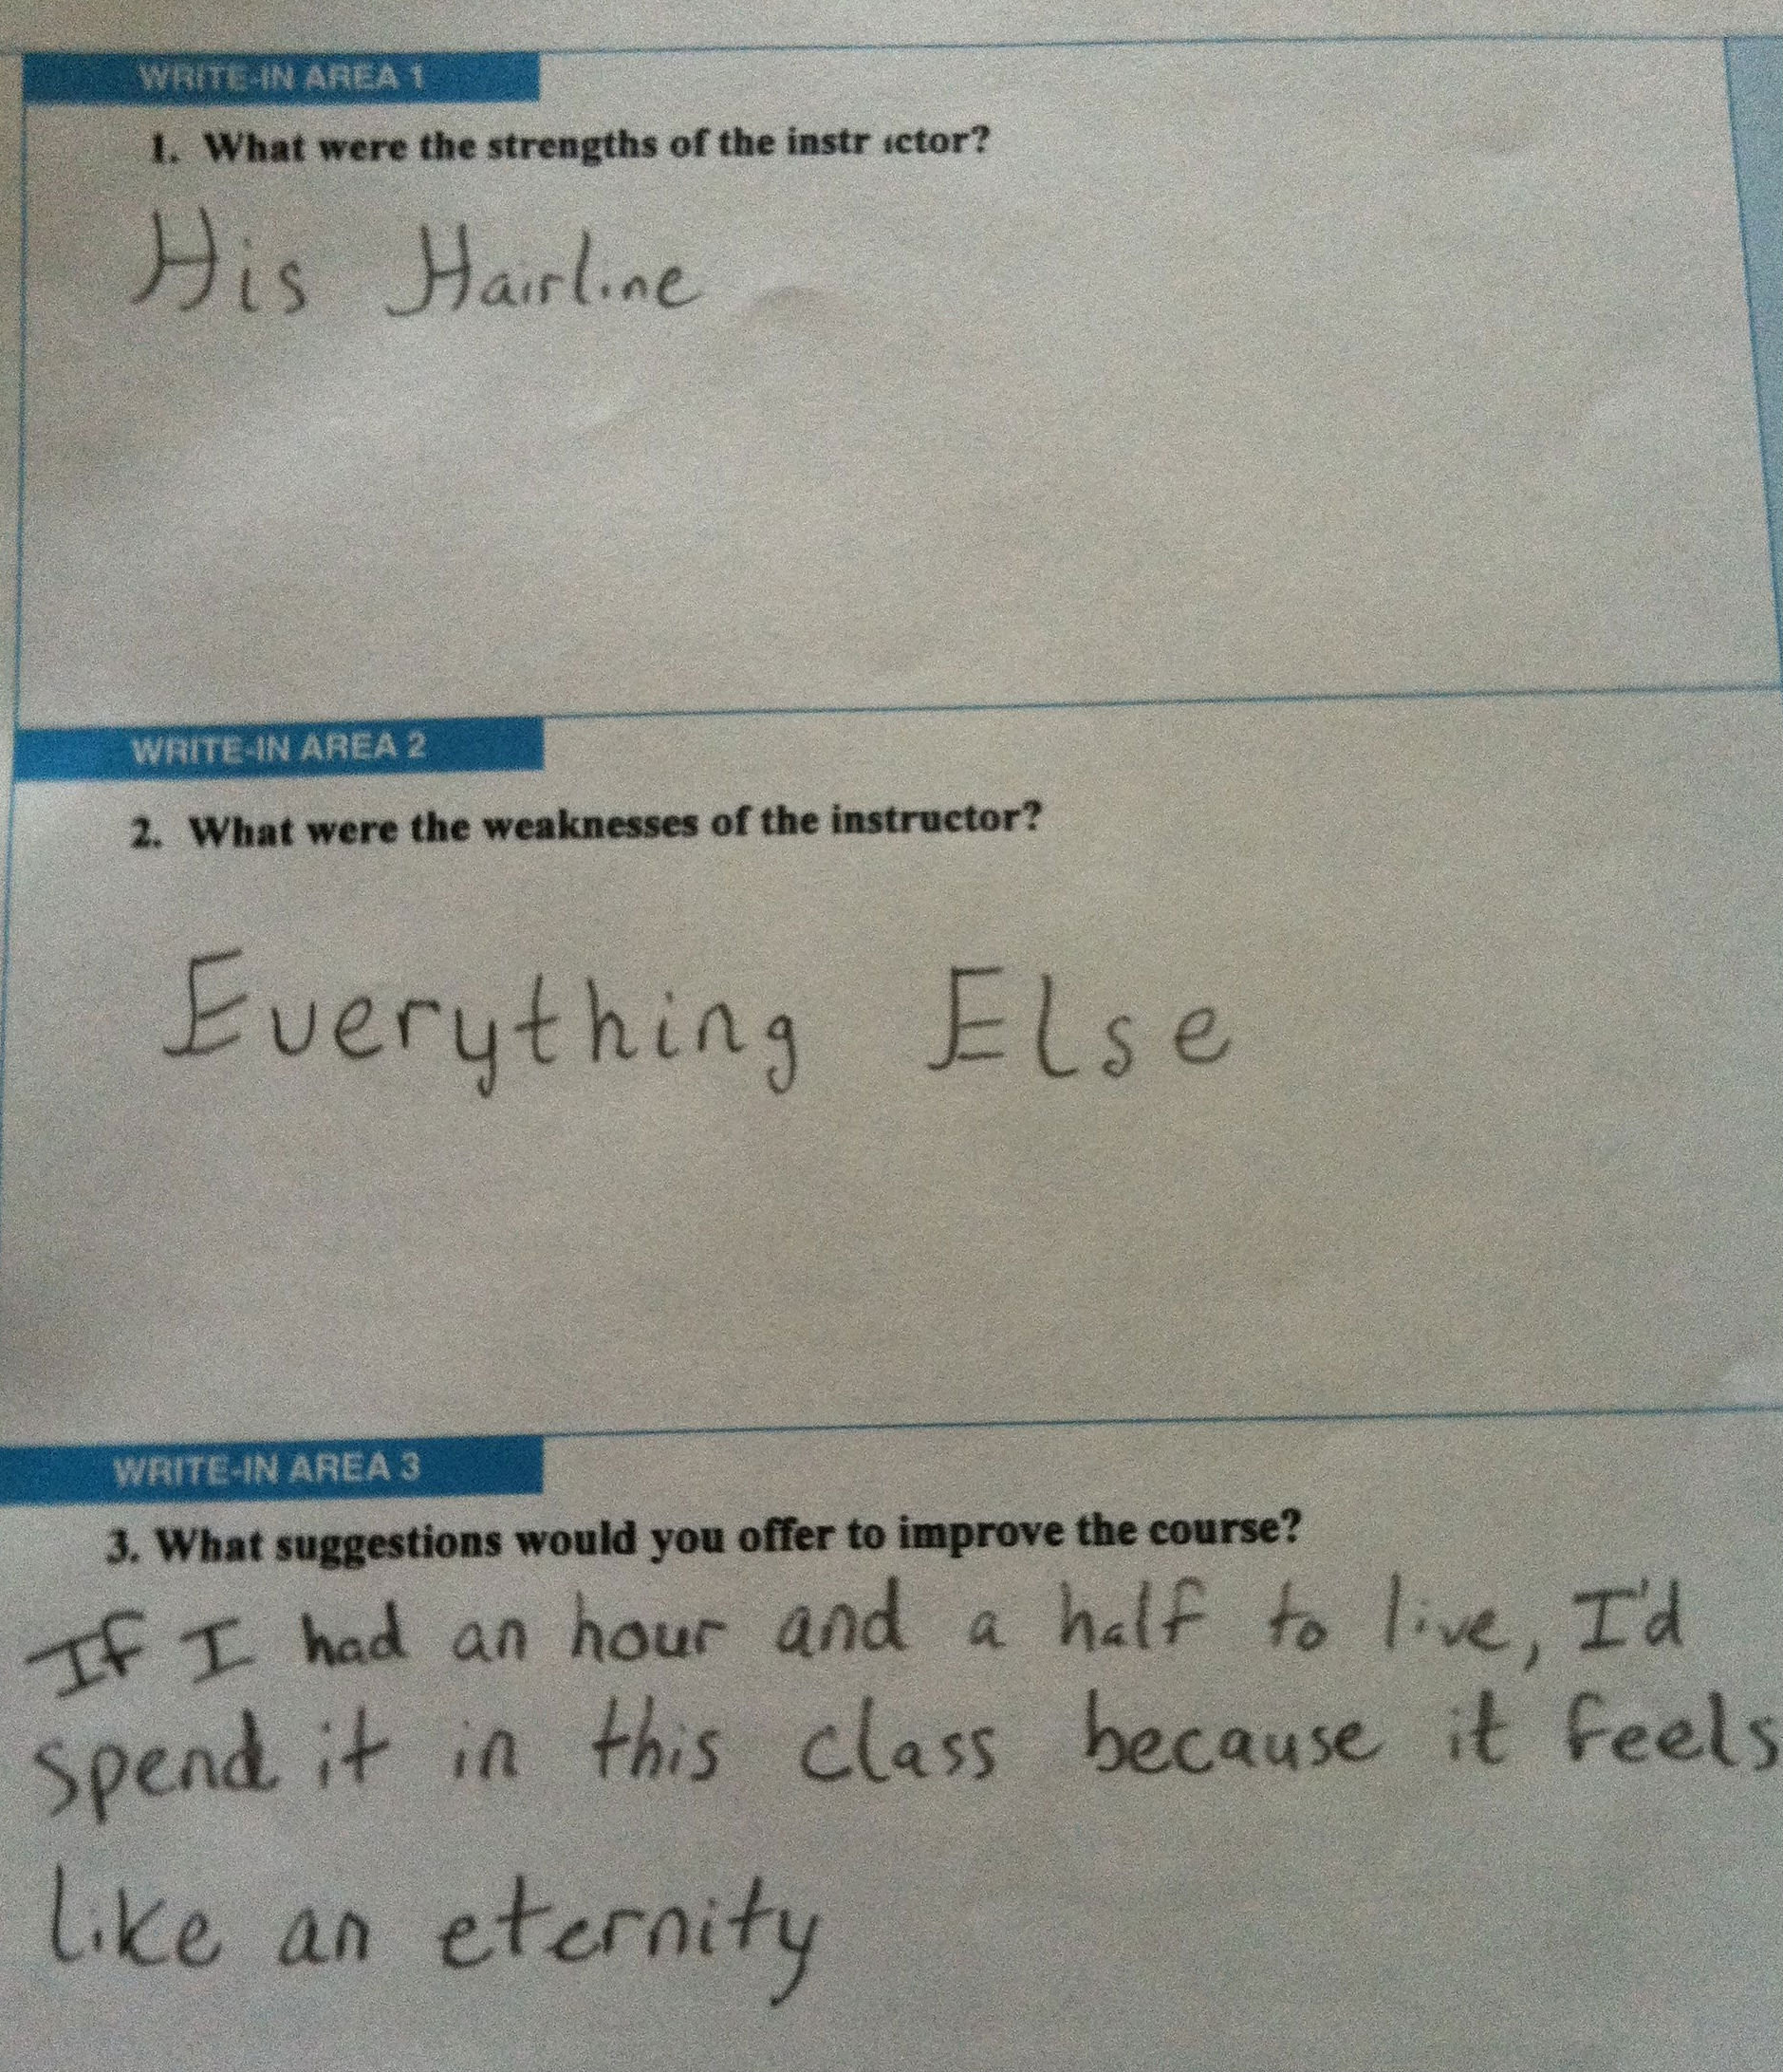 WRITE-IN AREA 1
1. What were the strengths of the instr ctor?
His Hairline
WRITE-IN AREA 2
2. What were the weaknesses of the instructor?
Everything Else
WRITE-IN AREA 3
3. What suggestions would you offer to improve the course?
If I had an hour and a half to live, I'd
spend it in this class because it feels
like an eternity